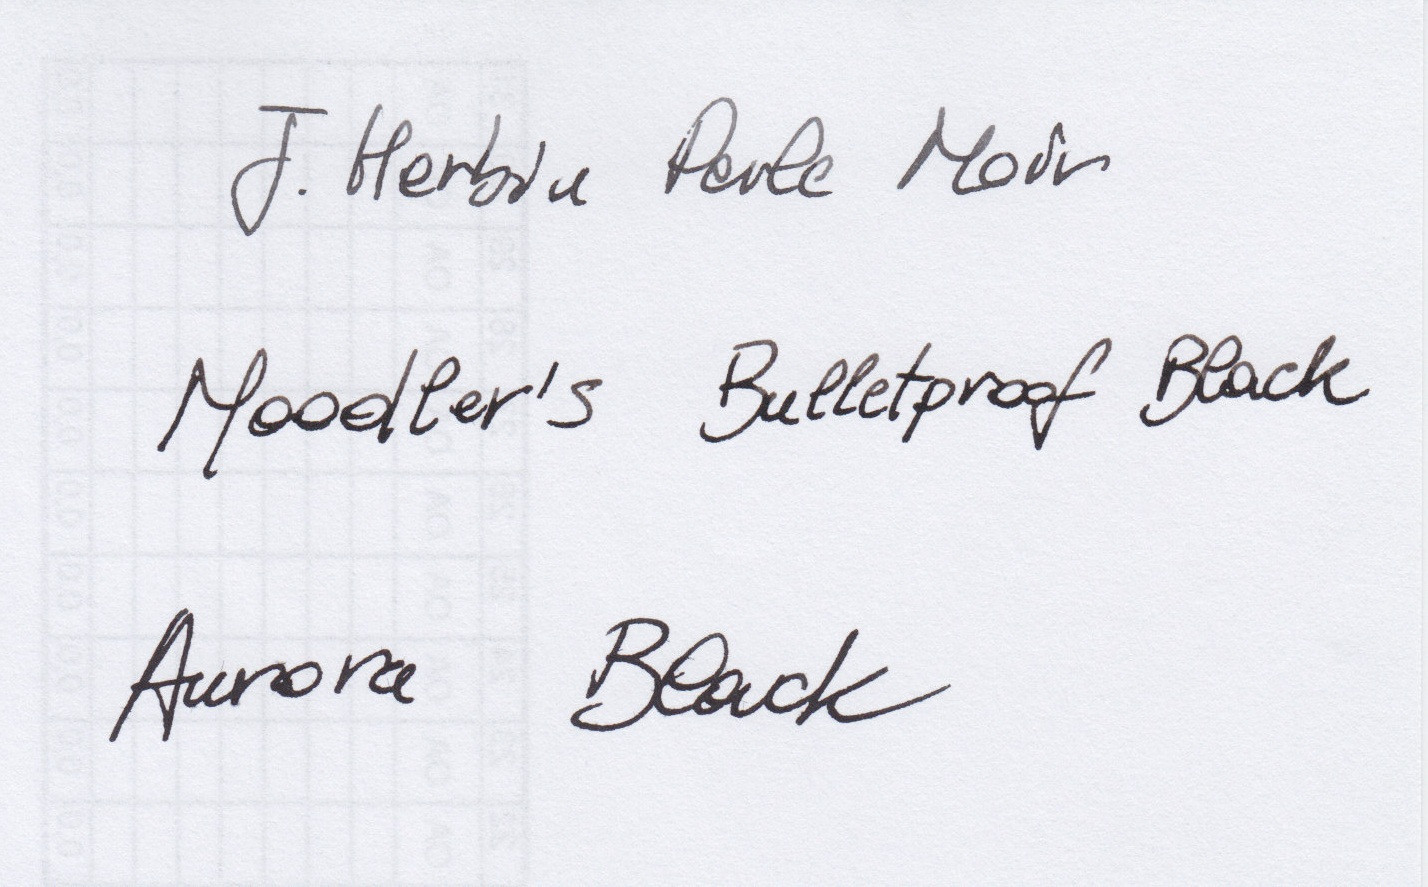 J. Herbin Perle Noir
Noodler's Bulletproof Black
Aurora Black